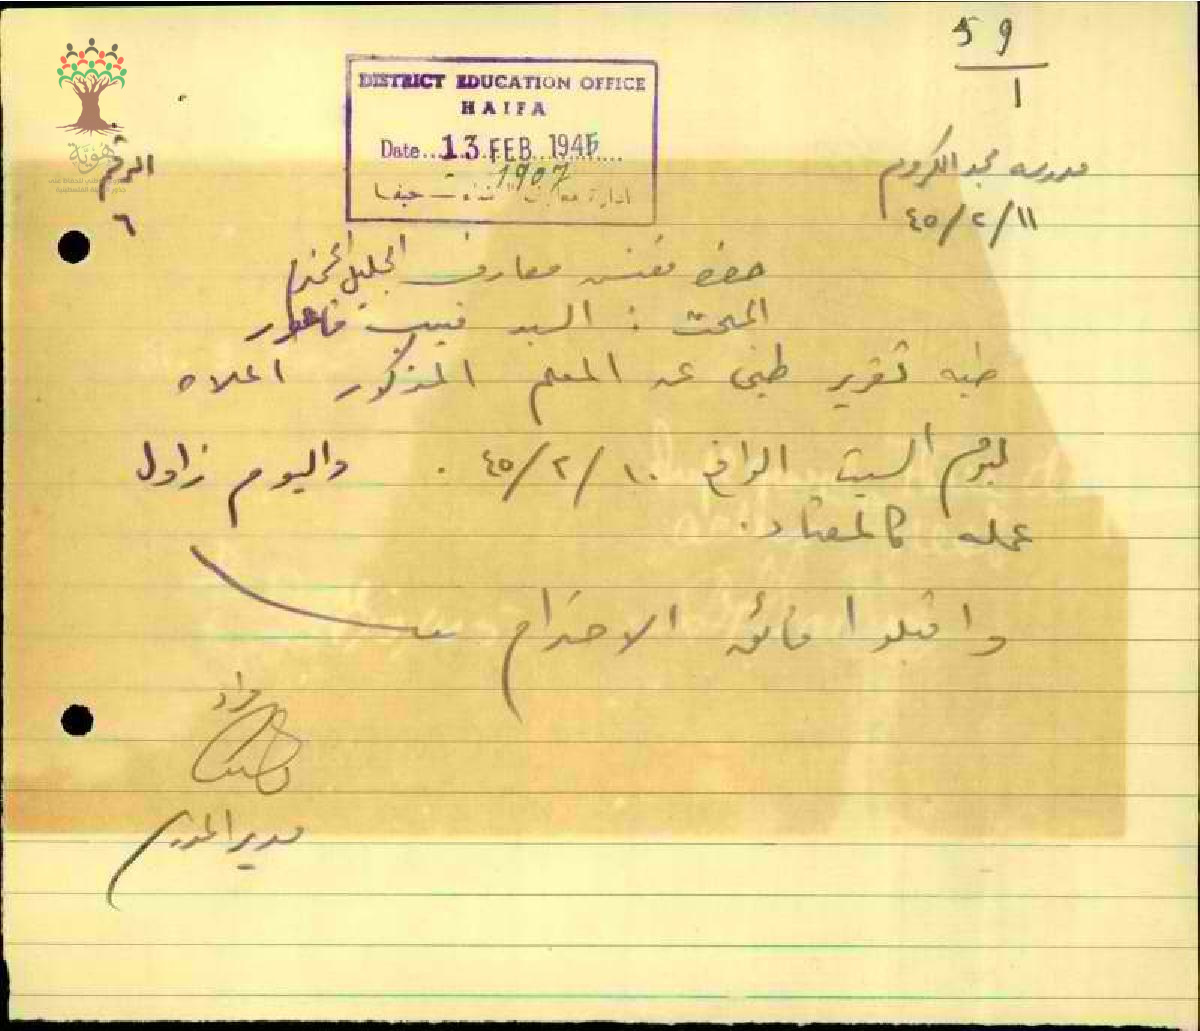 59
1
DISTRICT EDUCATION OFFICE
HAIFA
Date 13 FEB 1945
1907
ادارة معارف لواء حيفا
هَوِيَّة
مدرسة مجد الكروم
الرقم
٤٥/٢/١١
٦
حضرة مفتش معارف الجليل المحترم
المبحث : السيد نجيب قاعور
طيه تقرير طبي عن المعلم المذكور اعلاه
ليوم السبت الواقع ٤٥/٢/١٠ . واليوم زاول
عمله كالمعتاد .
واقبلوا فائق الاحترام
مدير المدرسة